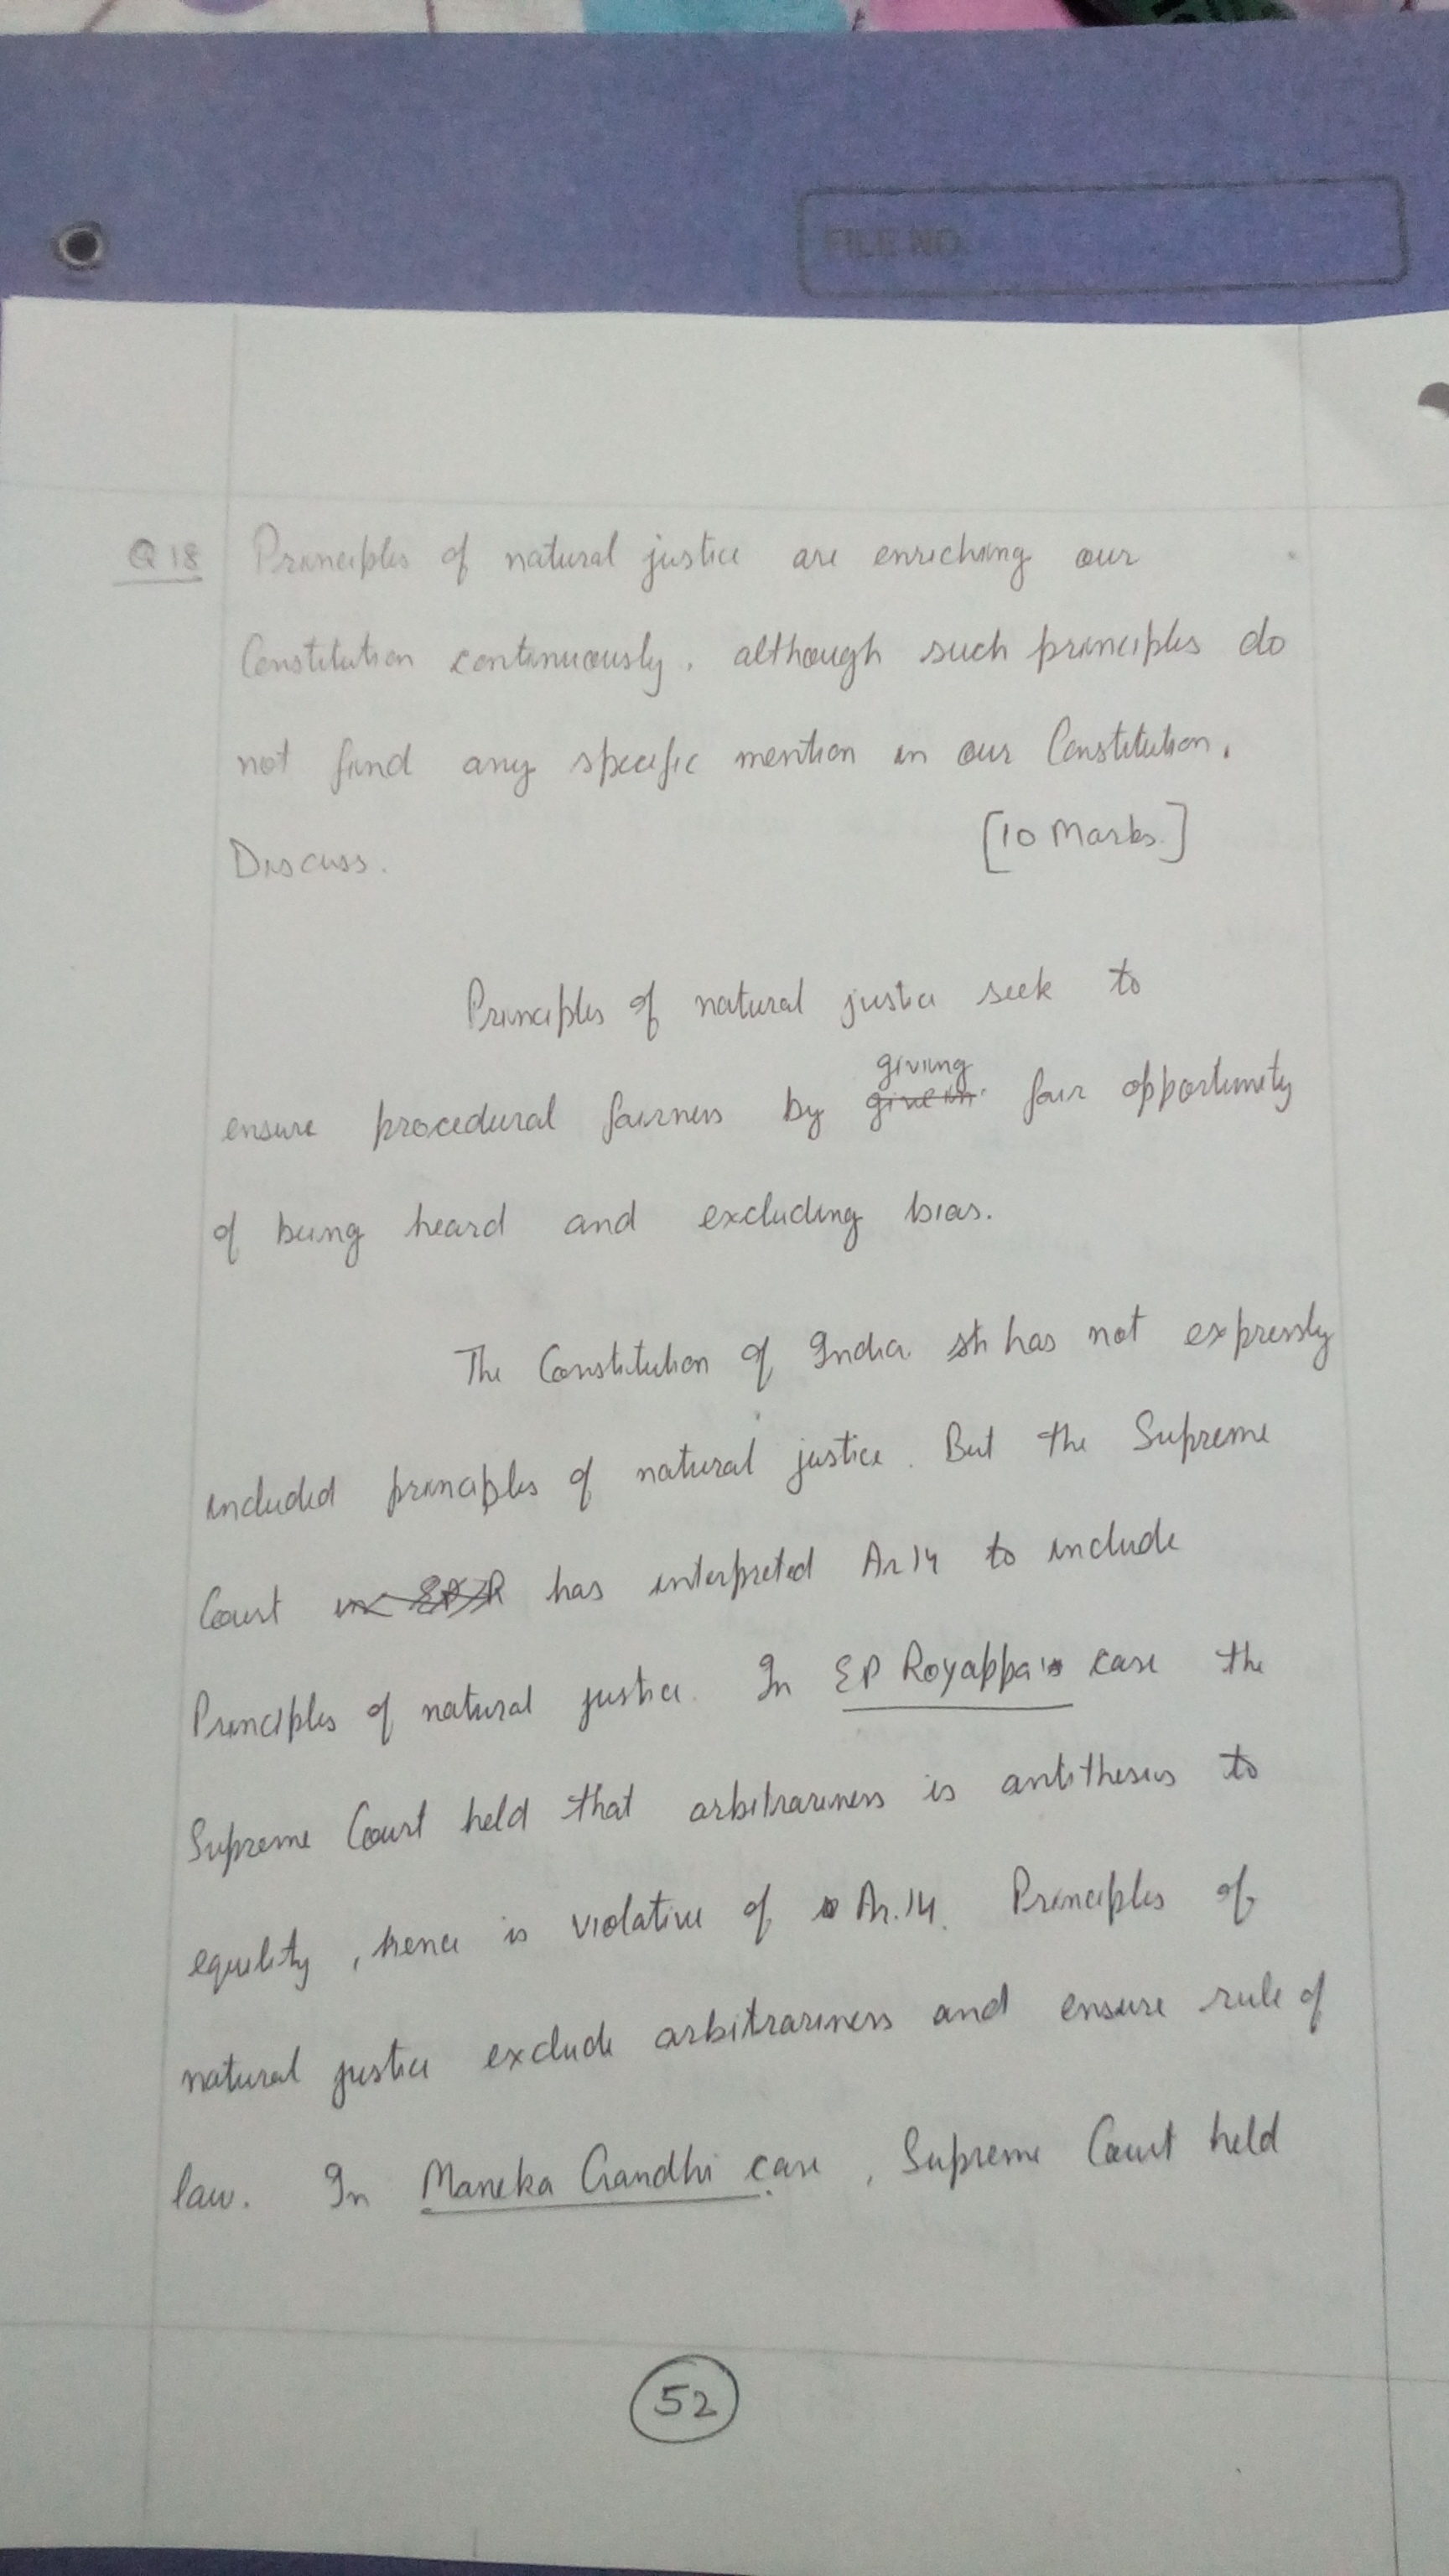 FILE NO.
Q 18 Principles of natural justice are enriching our
Constitution continuously, although such principles do
not find any specific mention in our Constitution.
Discuss. [10 Marks]
Principles of natural justice seek to
giving
ensure procedural fairness by fair opportunity
of being heard and excluding bias.
The Constitution of India has not expressly
included principles of natural justice. But the Supreme
Court has interpreted Ar 14 to include
Principles of natural justice. In EP Royappa's case the
Supreme Court held that arbitrariness is antithesis to
equality, hence is violative of Ar.14. Principles of
natural justice exclude arbitrariness and ensure rule of
law. In Maneka Gandhi case, Supreme Court held
52